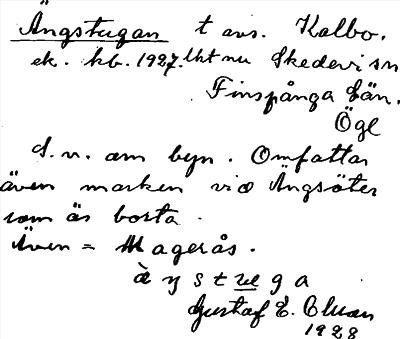 Ängstugan t avs. Kalbo.
ek. kb. 1927. Utt nu Skedevi sn
Finspånga län.
Ögl
S. n. om byn. Omfattar
även marken vid Ängsöter
som är borta.
Även = Magerås.
Gustaf E.
1928